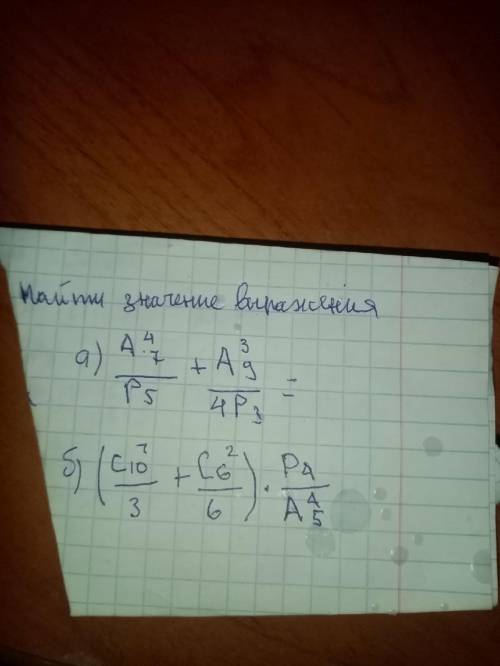 Найти значение выражения
а) A⁴₇/P₅ + A³₉/4P₃ =
б) (C₁₀⁷/3 + C₆²/6) · P₄/A⁴₅